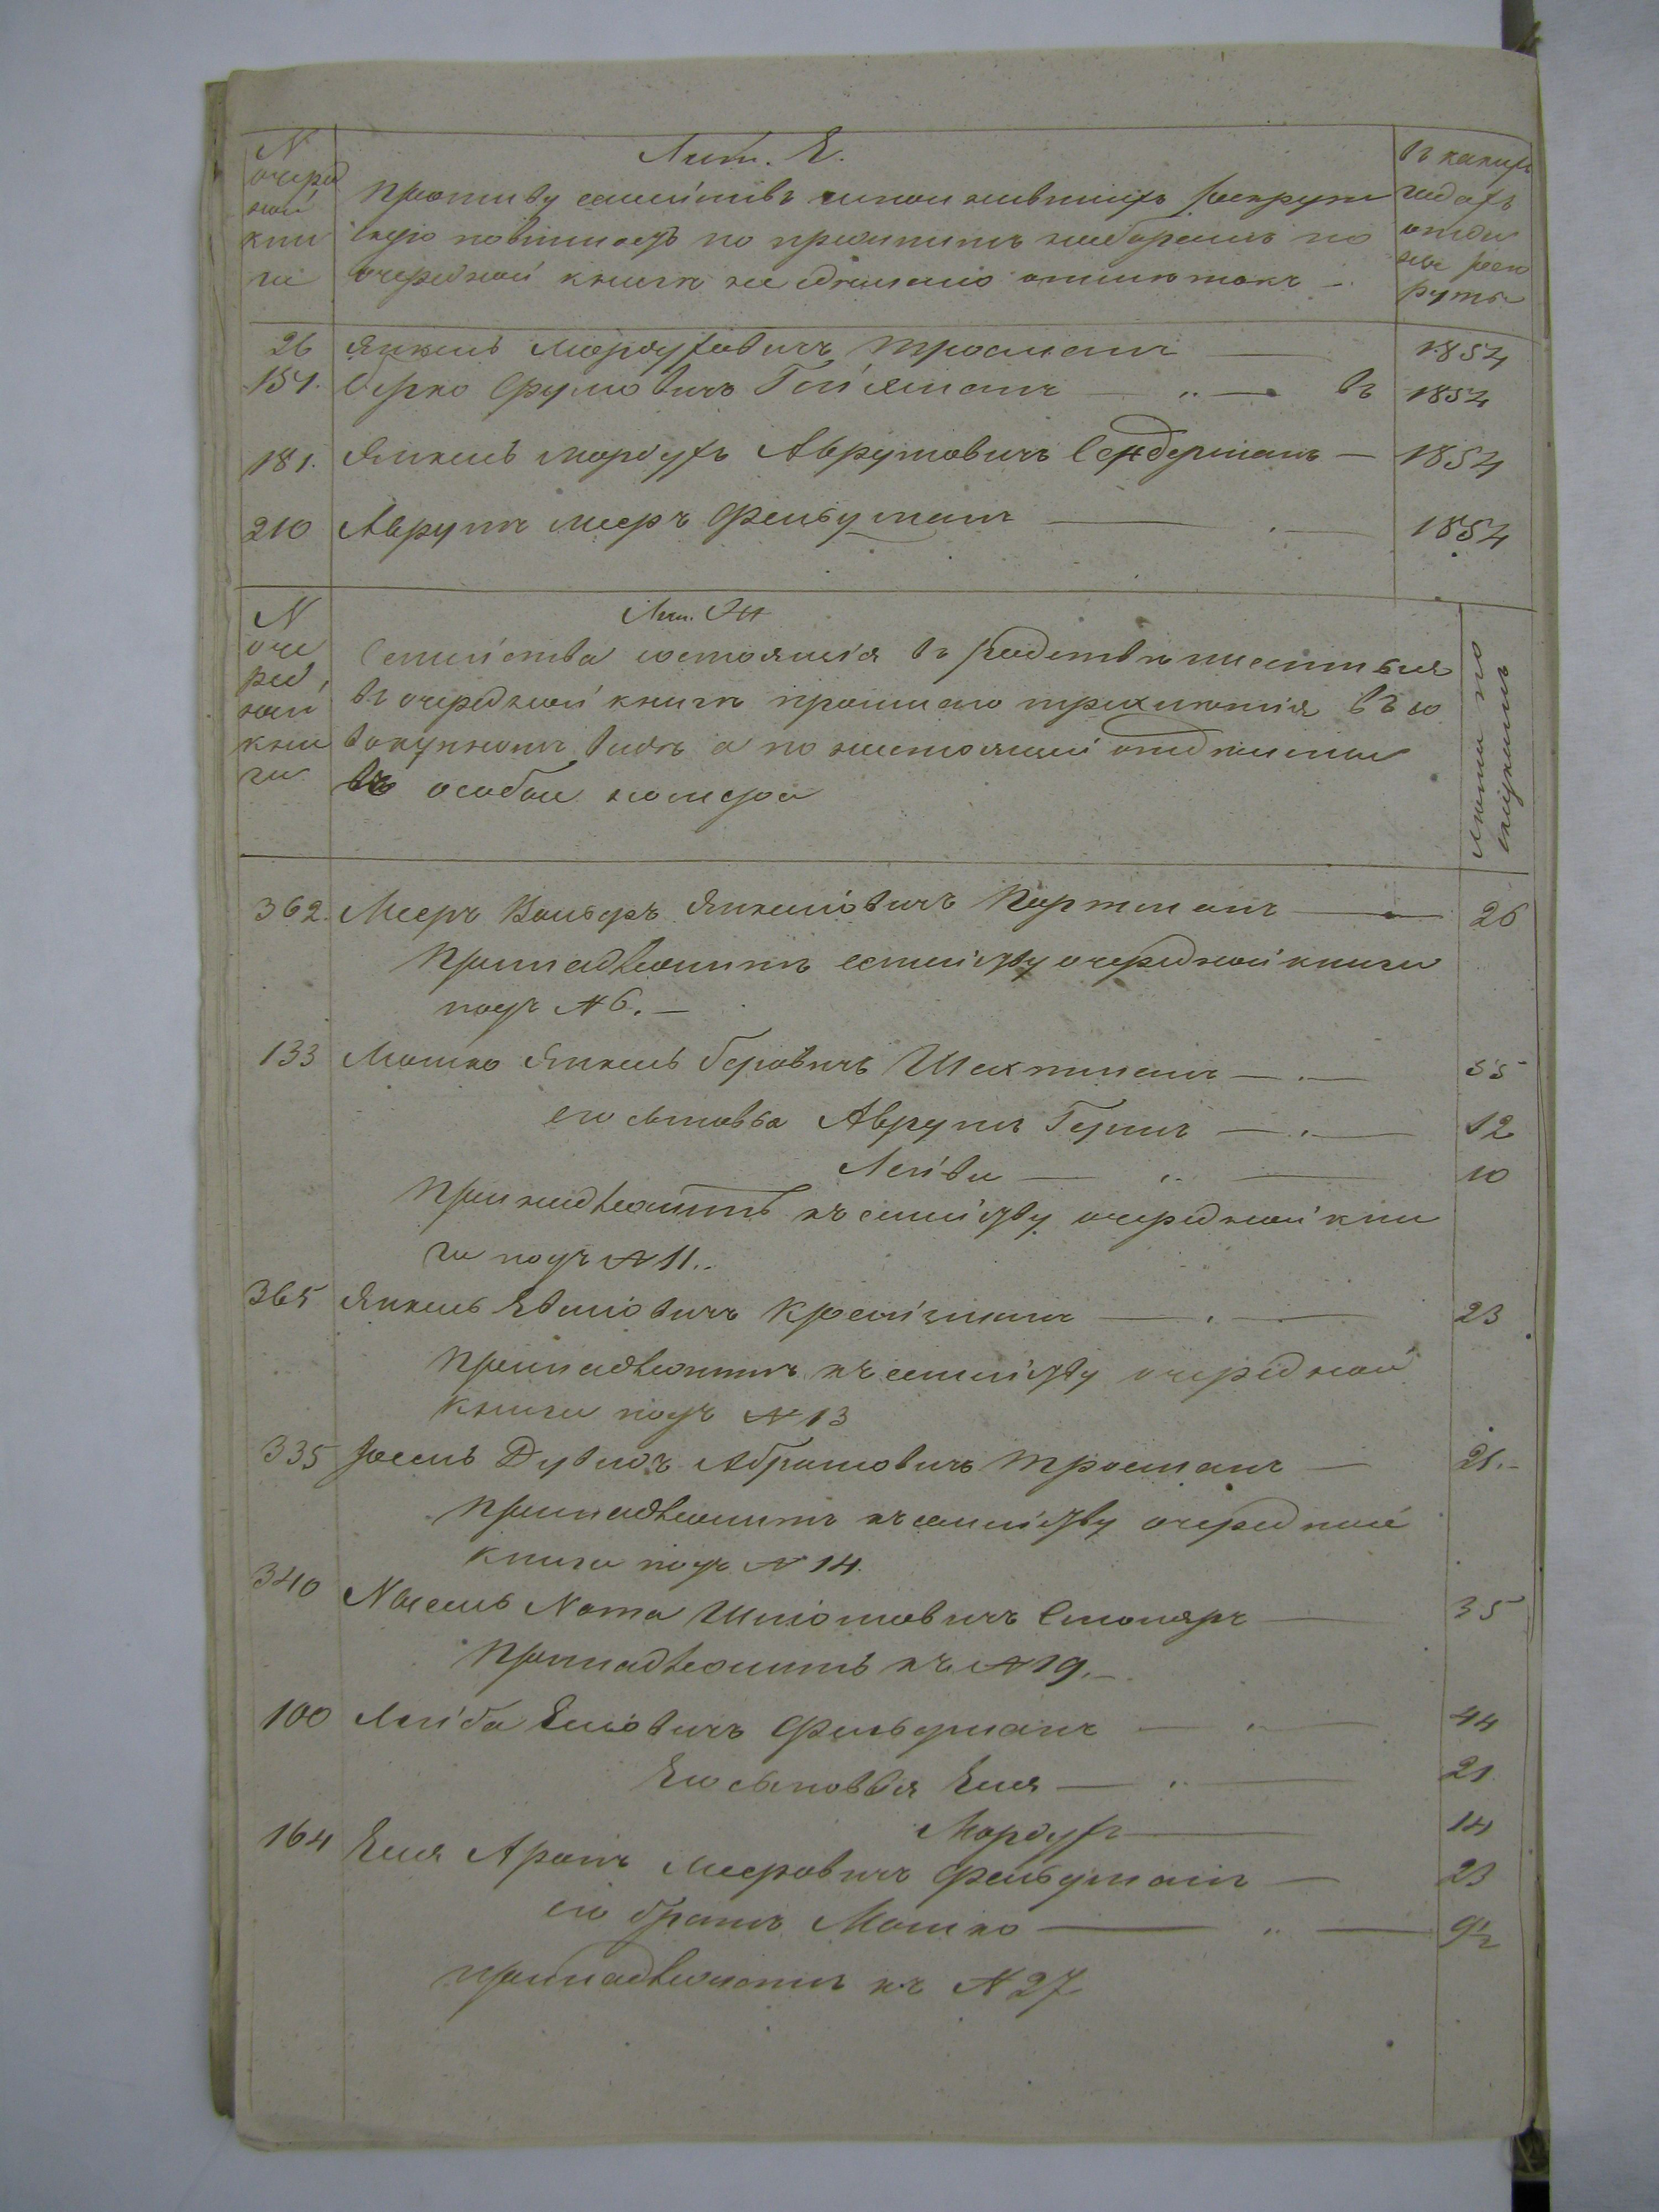 N очеред ной кни ги
Лит. Е.
Противу семействъ исполнившихъ рекрут
скую повинность по прошлымъ наборамъ по
очередной книгѣ не сдѣлано отмѣтокъ
Въ какихъ годахъ отда ны рек руты
26 Янкель Мордуховичъ Тросманъ — 1854
151. Берко Срулевичъ Гойхманъ — „ — въ 1854
181. Янкель Мордухъ Аврумовичъ Сендерманъ — 1854
210 Аврумъ Мееръ Фельдманъ — 1854
N оче ред ной кни ги
Лит. Ж
Семейства состоящія въ родствѣ писанныя
въ очередной книгѣ прошлаго трехлѣтія въ со
вокупномъ видѣ а по настоящей отдѣлены
въ особые номера
Лѣта по сказкамъ
362. Мееръ Вольфъ Янкеліовичъ Портманъ — 26
Принадлежитъ семейству очередной книги
подъ N 6. —
133 Мошко Янкель Беровичъ Шахтманъ — . — 55
его сыновья Аврумъ Гершъ — . — 12
Лейви — „ — 10
Принадлежитъ къ семейству очередной кни
ги подъ N 11..
365 Янкель Евлиовичъ Крейчманъ — . — 23
Принадлежитъ къ семейству очередной
книги подъ N 13
335 Іосель Дувидъ Абрамовичъ Тросманъ — 21. –
Принадлежитъ къ семейству очередной
книги подъ N 14.
340 Іосель Нота Шліомовичъ Столяръ — 35
Принадлежитъ къ N 19. –
100 Лейба Еліовичъ Фельдманъ — . — 44
Его сыновья Еля — „ — 21
Мордухъ — 14
164 Еля Аронъ Мееровичъ Фельдманъ — 23
его братъ Мошко — „ — 9½
принадлежатъ къ N 27